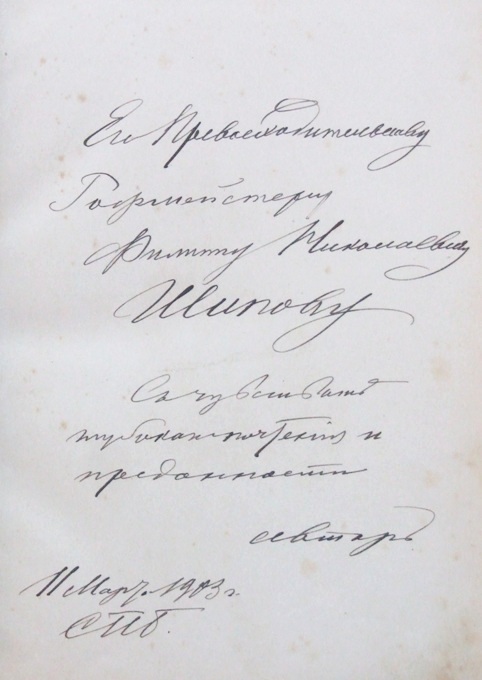 Его Превосходительству
Гофмейстеру
Филиппу Николаевичу
Шипову
Съ чувствомъ
глубокаго почтенія и
преданности
авторъ
11 Март. 1903 г.
СПб.